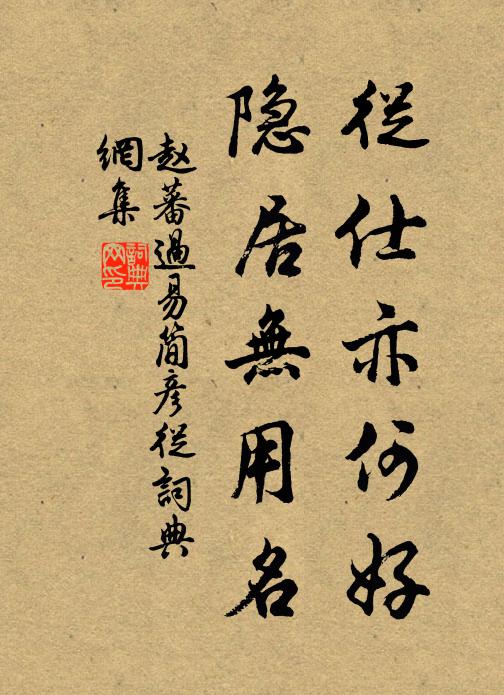 從仕亦何好
隐居無用名
赵蕃過易简彦從詞典
網集
詞典
网印